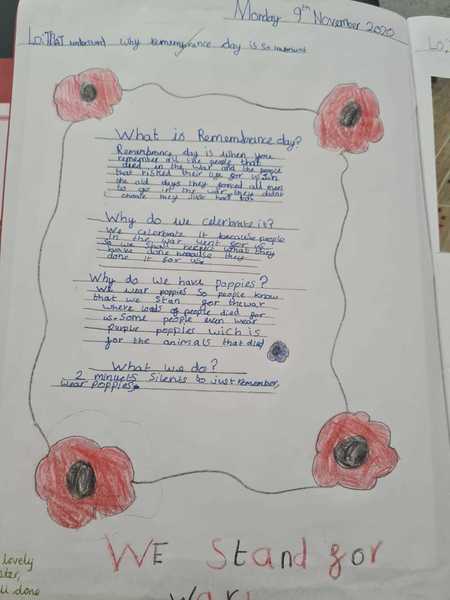 Monday 9th November 2020
Lo: TAT understand why rememprance day is so important
Lo:
What is Remembrance day?
Remembrance day is when you
remember all the people that
died in the war and the people
that risked their life for us in
the old days they forced all men
to go in the war they didnt
choose they just had to.
Why do we celerbrate it?
We celerbrate it because people
in the war went for us
so we shall respect what they
have done because they
done it for us.
Why do we have poppies?
We wear poppies so people know
that we stan for the war
where loads of people died for
us. Some people even wear
purple popples wich is
for the animals that died
What we do?
2 minuets silents to just remember,
wear poppies.
WE Stand for
war
lovely
ll done